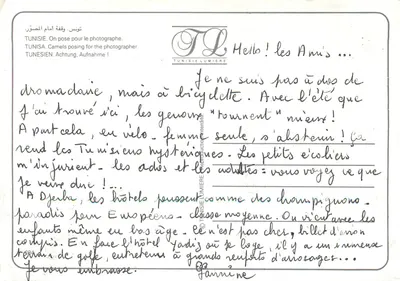 تونس - وقفة أمام المصور
TUNISIE. On pose pour le photographe.
TUNISIA. Camels posing for the photographer.
TUNESIEN: Achtung, Aufnahme!
TL
TUNISIE LUMIERE
Hello! les Amis...
Je ne suis pas à dos de
dromadaire, mais à bicyclette. Avec l'été que
j'ai trouvé ici, les genoux "tournent" mieux!
A part cela, en vélo - femme seule, s'abstenir! Ça
rend les Tunisiens hystériques. Les petits écoliers
m'injurient - les ados et les adultes = vous voyez ce que
je veux dire!...
A Djerba, les hôtels poussent comme des champignons -
paradis pour Européens - classe moyenne. On vient avec les
enfants même en bas âge. Ce n'est pas cher, billet d'avion
compris. En face l'hôtel Yadis où je loge, il y a un immense
terrain de golf, entretenu à grands renforts d'arrosages...
Je vous embrasse.